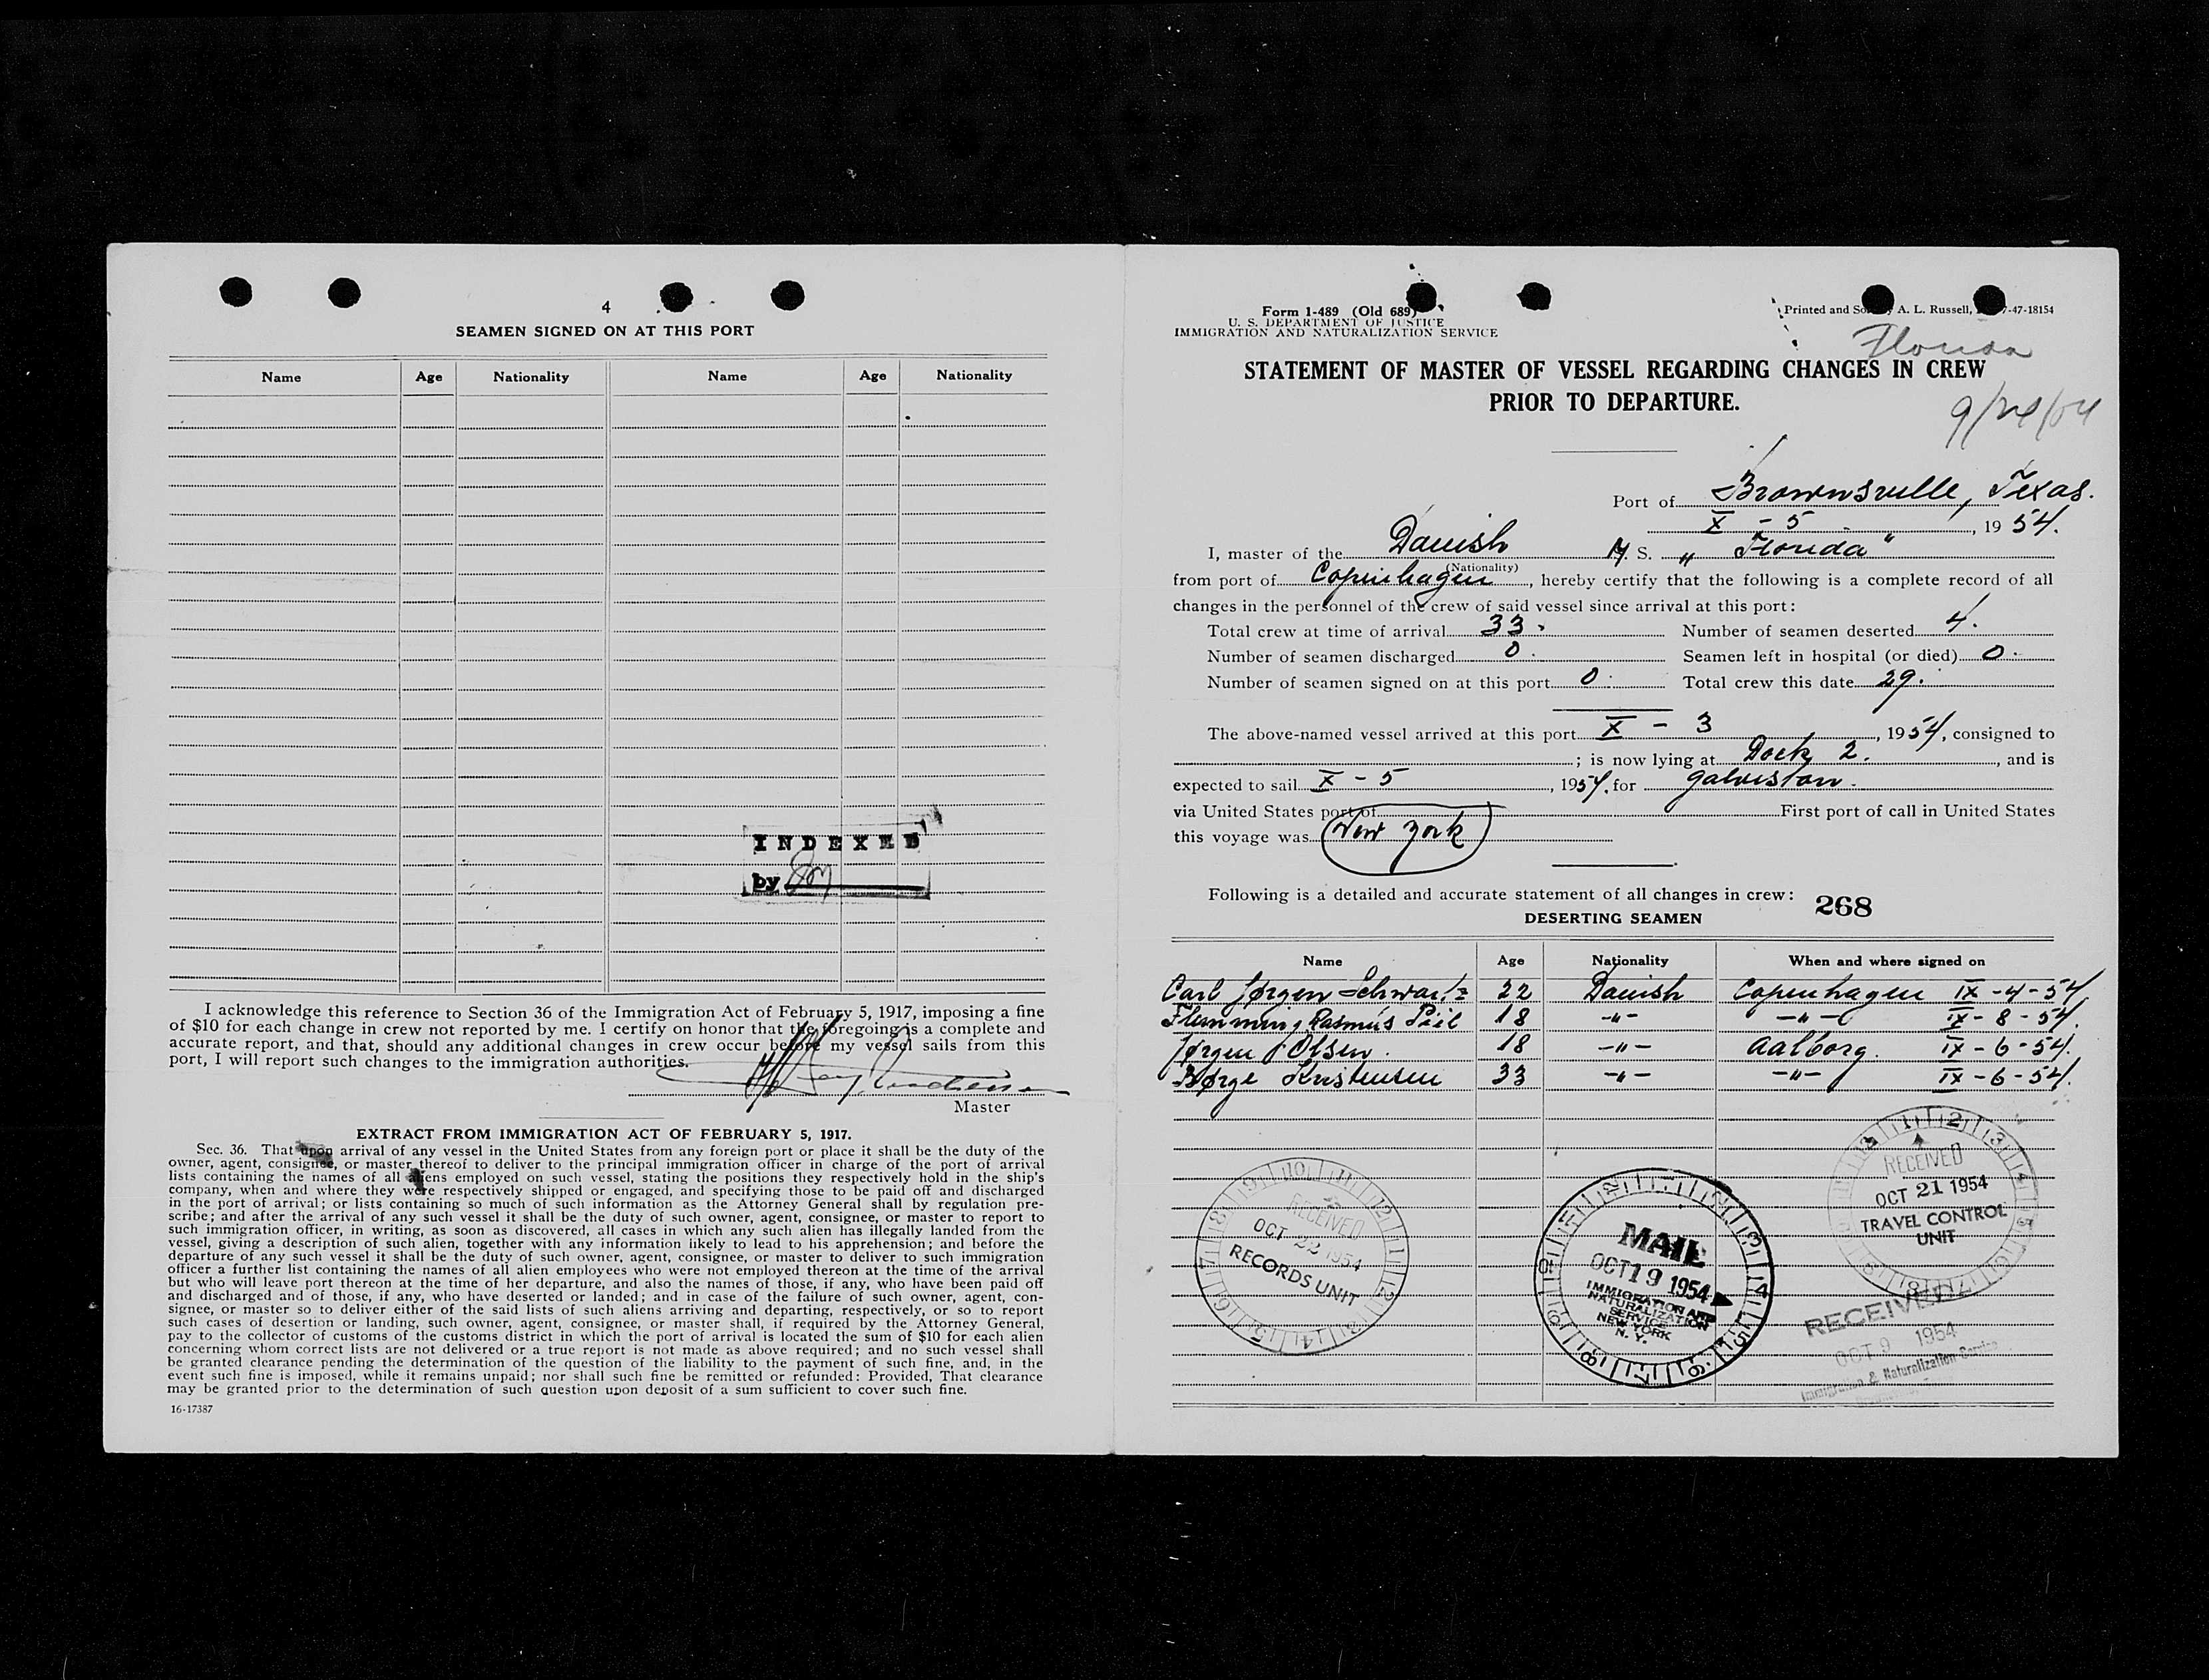 4
SEAMEN SIGNED ON AT THIS PORT
Name Age Nationality Name Age Nationality
INDEXED
by
I acknowledge this reference to Section 36 of the Immigration Act of February 5, 1917, imposing a fine
of $10 for each change in crew not reported by me. I certify on honor that the foregoing is a complete and
accurate report, and that, should any additional changes in crew occur before my vessel sails from this
port, I will report such changes to the immigration authorities.
Master
EXTRACT FROM IMMIGRATION ACT OF FEBRUARY 5, 1917.
Sec. 36. That upon arrival of any vessel in the United States from any foreign port or place it shall be the duty of the
owner, agent, consignee, or master thereof to deliver to the principal immigration officer in charge of the port of arrival
lists containing the names of all aliens employed on such vessel, stating the positions they respectively hold in the ship's
company, when and where they were respectively shipped or engaged, and specifying those to be paid off and discharged
in the port of arrival; or lists containing so much of such information as the Attorney General shall by regulation pre-
scribe; and after the arrival of any such vessel it shall be the duty of such owner, agent, consignee, or master to report to
such immigration officer, in writing, as soon as discovered, all cases in which any such alien has illegally landed from the
vessel, giving a description of such alien, together with any information likely to lead to his apprehension; and before the
departure of any such vessel it shall be the duty of such owner, agent, consignee, or master to deliver to such immigration
officer a further list containing the names of all alien employees who were not employed thereon at the time of the arrival
but who will leave port thereon at the time of her departure, and also the names of those, if any, who have been paid off
and discharged and of those, if any, who have deserted or landed; and in case of the failure of such owner, agent, con-
signee, or master so to deliver either of the said lists of such aliens arriving and departing, respectively, or so to report
such cases of desertion or landing, such owner, agent, consignee, or master shall, if required by the Attorney General,
pay to the collector of customs of the customs district in which the port of arrival is located the sum of $10 for each alien
concerning whom correct lists are not delivered or a true report is not made as above required; and no such vessel shall
be granted clearance pending the determination of the question of the liability to the payment of such fine, and, in the
event such fine is imposed, while it remains unpaid; nor shall such fine be remitted or refunded: Provided, That clearance
may be granted prior to the determination of such question upon deposit of a sum sufficient to cover such fine.
16-17387
Form 1-489 (Old 689)
U. S. DEPARTMENT OF JUSTICE
IMMIGRATION AND NATURALIZATION SERVICE
Printed and A. L. Russell, 7-47-18154
Florida
STATEMENT OF MASTER OF VESSEL REGARDING CHANGES IN CREW
PRIOR TO DEPARTURE.
Port of Brownsville, Texas.
X - 5, 1954.
I, master of the Danish M. S. „ Florida"
(Nationality)
from port of Copenhagen, hereby certify that the following is a complete record of all
changes in the personnel of the crew of said vessel since arrival at this port:
Total crew at time of arrival 33. Number of seamen deserted 4.
Number of seamen discharged 0. Seamen left in hospital (or died) 0.
Number of seamen signed on at this port 0. Total crew this date 29.
The above-named vessel arrived at this port X - 3, 1954, consigned to
; is now lying at Dock 2., and is
expected to sail X - 5, 1954, for Galveston.
via United States port of First port of call in United States
this voyage was New York
Following is a detailed and accurate statement of all changes in crew: 268
DESERTING SEAMEN
Name Age Nationality When and where signed on
Carl Jørgen Schwartz 22 Danish Copenhagen IX - 4 - 54
Flemming Rasmus Piil 18 -"- -"- IX - 8 - 54.
Jørgen Olsen. 18 -"- Aalborg. IX - 6 - 54.
Børge Kristensen 33 -"- -"- IX - 6 - 54.
RECEIVED
OCT 22 1954
RECORDS UNIT
MAIL
OCT 19 1954
IMMIGRATION AND
NATURALIZATION
SERVICE
NEW YORK
N. Y.
RECEIVED
OCT 21 1954
TRAVEL CONTROL
UNIT
RECEIVED
OCT 9 1954
Immigration & Naturalization Service